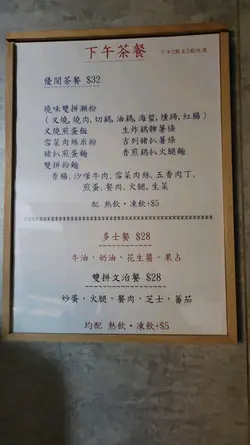 下午茶餐
下午2點至5點供應
優閒茶餐 $32
燒味雙拼瀨粉
(叉燒,燒肉,切鷄,油鷄,海蜇,燻蹄,紅腸)
叉燒煎蛋飯 生炸鷄髀薯條
雪菜肉絲米粉 吉列豬扒薯條
豬扒煎蛋麵 香煎鷄扒火腿麵
雙拼粉麵
香腸,沙嗲牛肉,雪菜肉絲,五香肉丁,
煎蛋,餐肉,火腿,生菜
配 熱飲·凍飲+$5
多士餐 $28
牛油,奶油,花生醬,果占
雙拼文治餐 $28
炒蛋,火腿,餐肉,芝士,蕃茄
均配 熱飲·凍飲+$5